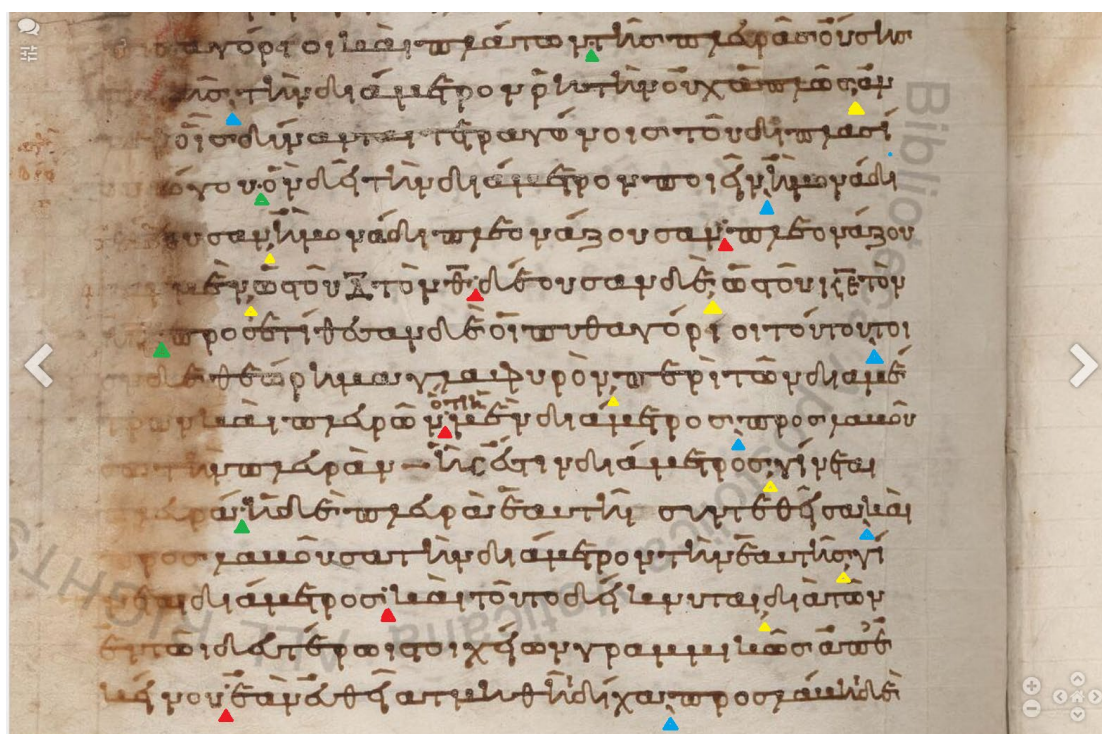 αγόριοι καὶ πλάτων· τῆς πλευρᾶς οὔσης
τῆς· τὴν διάμετρον ῥητὴν οὐχ ἁπλῶς· ἀν
οἷς δύνανται τετραγώνοις τοῦ διπλασί
λόγου· ὃν δεῖ τὴν διάμετρον ποιεῖν· ἢ μονάδι
ουσαν· ἢ μονάδι πλεονάζουσαν· πλεονάζου
μὲν ὡς τοῦ δ τὸν θ· δέουσαν δὲ ὡς τοῦ κε τὸν
προσετίθεσαν δὲ οἱ πυθαγόριοι τούτου τοι
όνδε θεώρημα γλαφυρὸν· περὶ τῶν διαμέ
τρων καὶ πλευρῶν· ὅτι ἡ μὲν διάμετρος· προσλαβοῦ
σα τὴν πλευρὰν ἧς ἐστιν διάμετρος· γίνεται
πλευρά· ἡ δὲ πλευρὰ ἑαυτῆ συντεθεῖσα· καὶ
προσλαβοῦσα τὴν διάμετρον τὴν ἑαυτῆς· γί
νεται διάμετρος· καὶ τοῦτο δείκνυται διὰ τῶν
ἐν τῶ δευτέρω στοιχείων γραμμικῶς ἀπ' ἐ
κείνου· ἐὰν εὐθεῖα τμηθῆ δίχα· προσλάβη δὲ